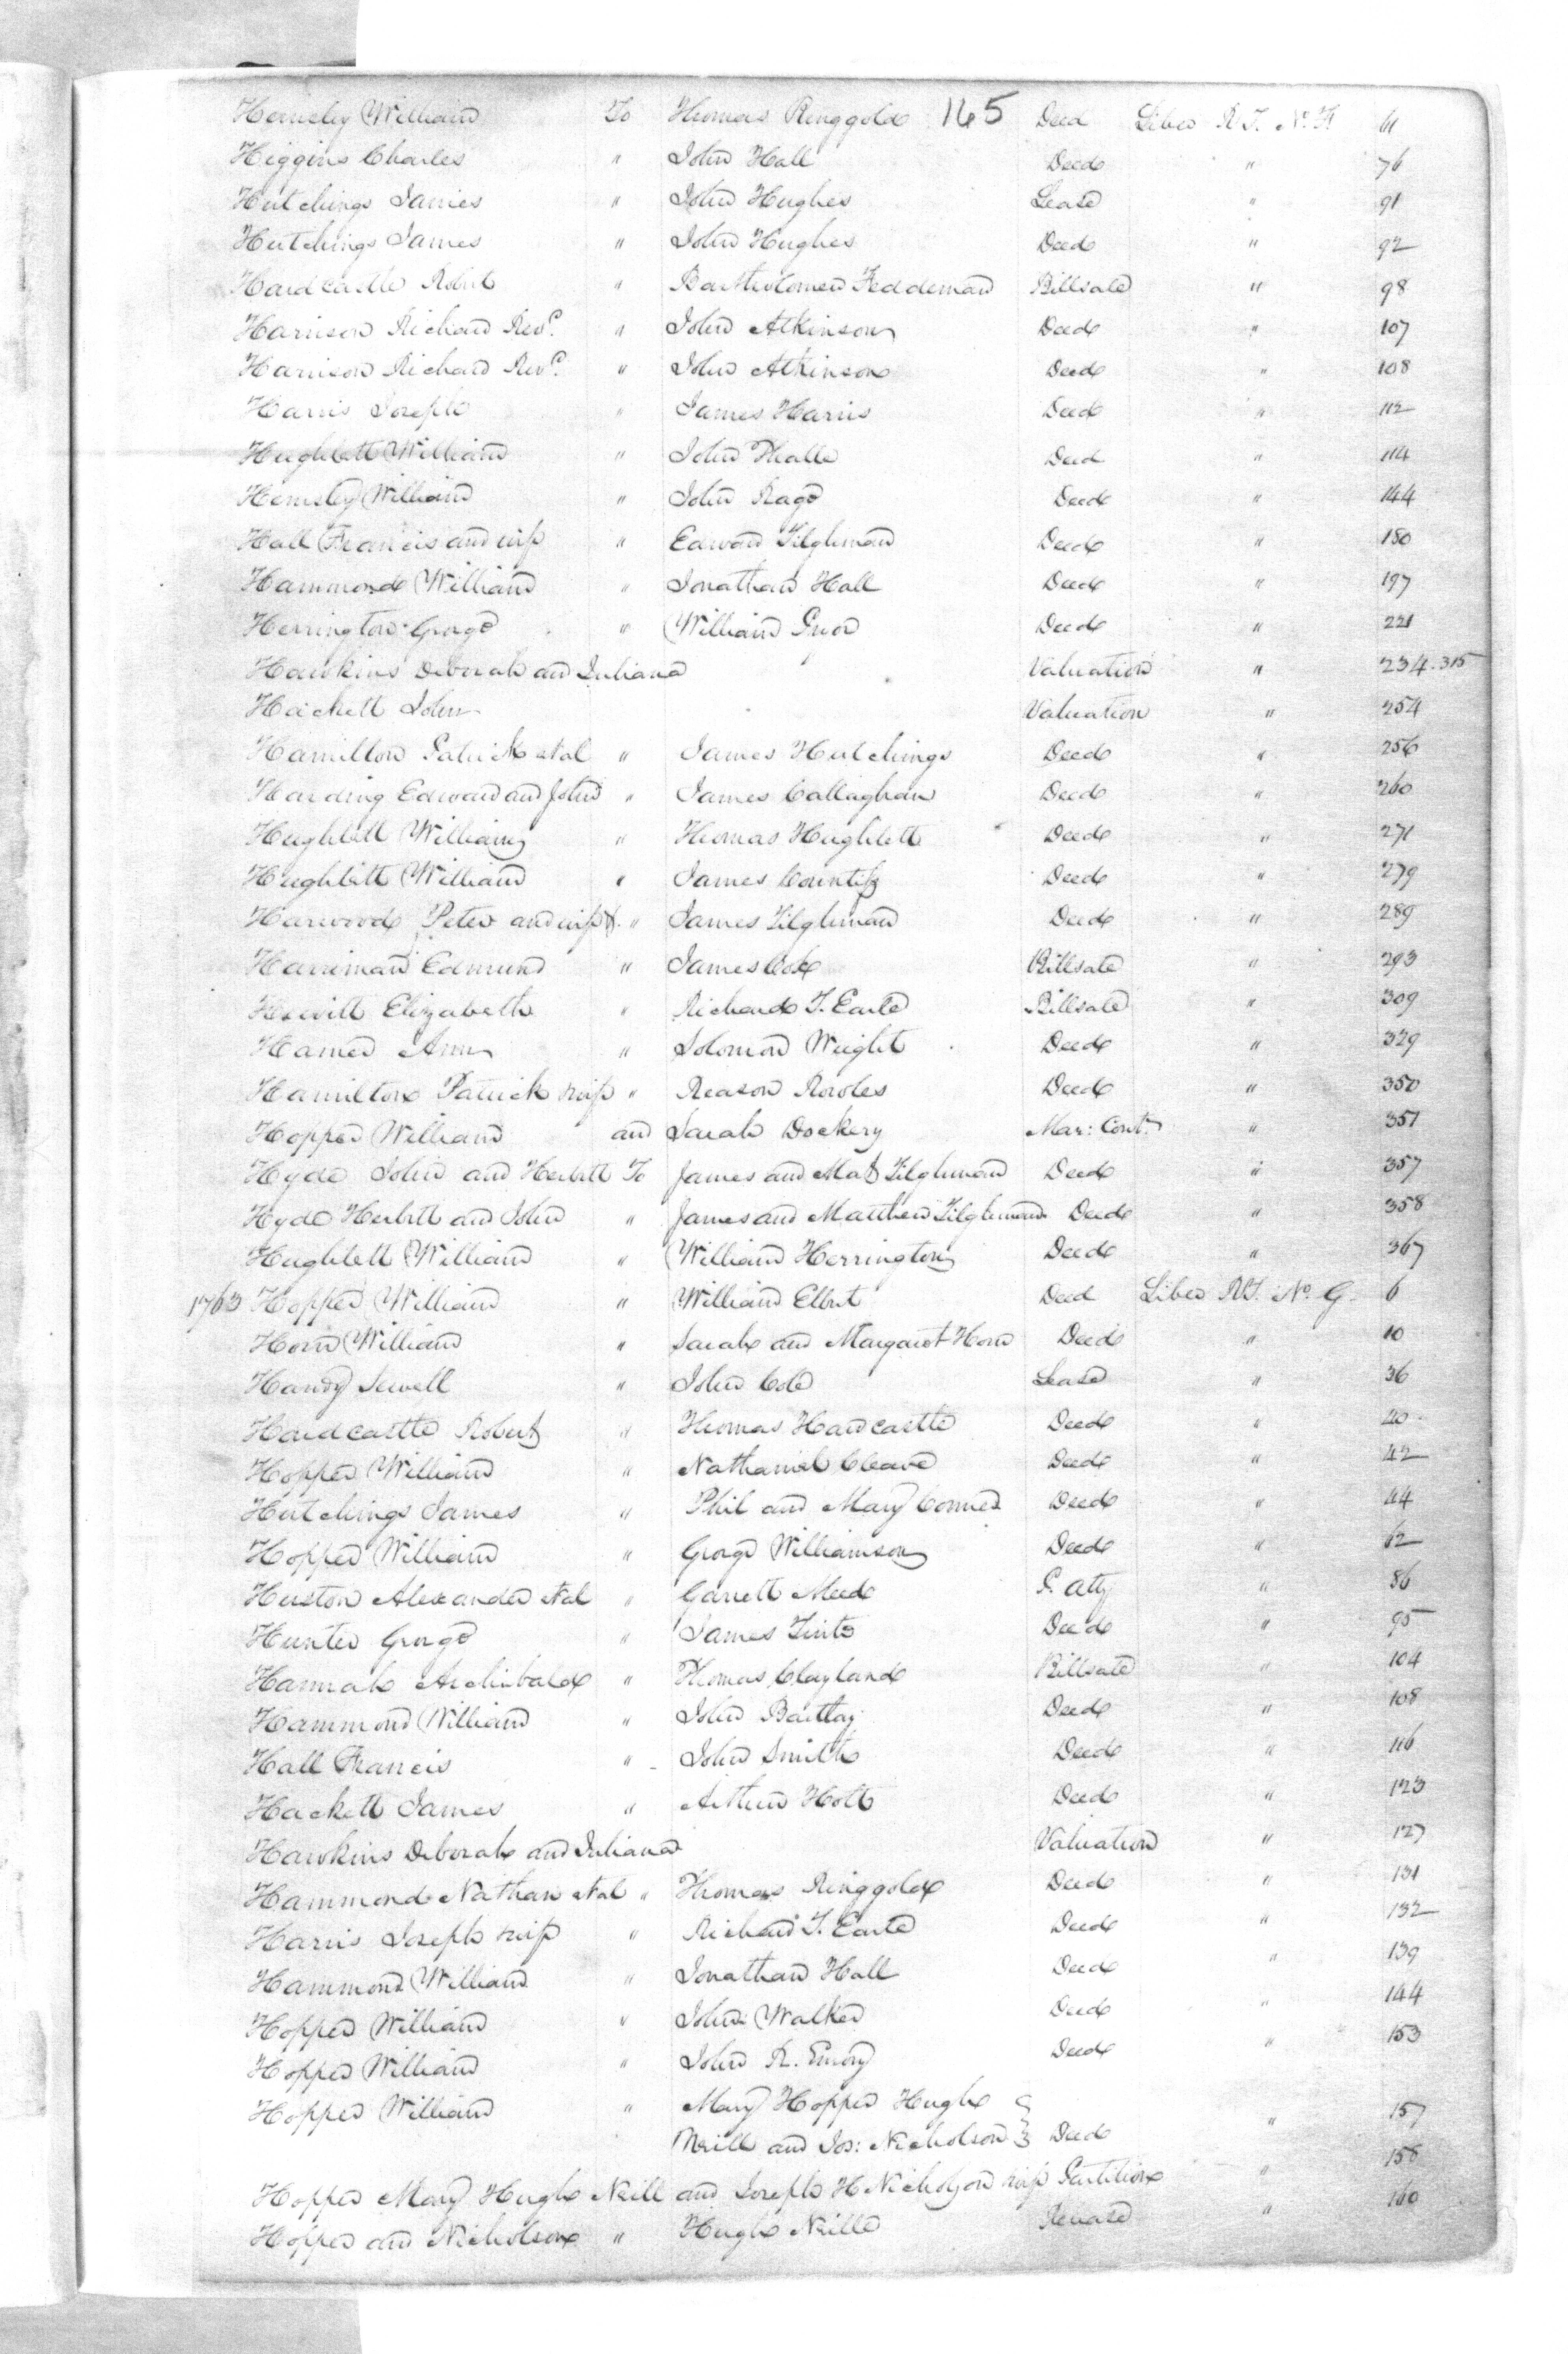 Hemsley William To Thomas Ringgold 165 Deed Liber R.T. No. F. 61
Higgins Charles " John Hall Deed " 76
Hutchings James " John Hughes Lease " 91
Hutchings James " John Hughes Deed " 92
Hardcastle Robert " Bartholomew Feddeman Billsale " 98
Harrison Richard Revd. " John Atkinson Deed " 107
Harrison Richard Revd. " John Atkinson Deed " 108
Harris Joseph " James Harris Deed " 112
Hughlett William " John Deed " 114
Hemsley William " John Page Deed " 144
Hall Francis and wife " Edward Tilghman Deed " 180
Hammond William " Jonathan Hall Deed " 197
Herrington George " William Prior Deed " 221
Hawkins Deborah and Juliana Valuation " 234.315
Hackett John Valuation " 254
Hamilton Patrick et al " James Hutchings Deed " 256
Harding Edward and John " James Callaghan Deed " 260
Hughlett William " Thomas Hughlett Deed " 271
Hughlett William " James Countiss Deed " 279
Harwood Peter and wife " James Tilghman Deed " 289
Harriman Edmund " James Cox Billsale " 293
Hewitt Elizabeth " Richard T. Earle Billsale " 309
Hamer Ann " Solomon Wright Deed " 329
Hamilton Patrick & wife " Reason Rowles Deed " 350
Hopper William and Sarah Dockery Mar: Cont. " 351
Hyde John and Herbert To James and Mat Tilghman Deed " 357
Hyde Herbert and John " James and Matthew Tilghman Deed " 358
Hughlett William " William Herrington Deed " 367
1763 Hopper William " William Elbert Deed Liber RT. No. G. 6
Horn William " Sarah and Margaret Horn Deed " 10
Handy Sewell " John Cole Lease " 36
Hardcastle Robert " Thomas Hardcastle Deed " 40
Hopper William " Nathaniel Cleave Deed " 42
Hutchings James " Phil and Mary Conner Deed " 44
Hopper William " George Williamson Deed " 62
Huston Alexander et al " Garrett Meed P. Atty " 86
Hunter George " James Tinto Deed " 95
Hannah Archibald " Thomas Clayland Billsale " 104
Hammond William " John Bartlay Deed " 108
Hall Francis " John Smith Deed " 116
Hackett James " Arthur Holt Deed " 123
Hawkins Deborah and Juliana Valuation " 127
Hammond Nathan et al " Thomas Ringgold Deed " 131
Harris Joseph & wife " Richard T. Earle Deed " 132
Hammond William " Jonathan Hall Deed " 139
Hopper William " John Walker Deed " 144
Hopper William " John R. Emory Deed " 153
Hopper William " Mary Hopper Hugh
Neill and Jos: Nicholson } Deed " 157
Hopper Mary Hugh Neill and Joseph H Nicholson & wife Partition " 158
Hopper and Nicholson " Hugh Neill Release " 160